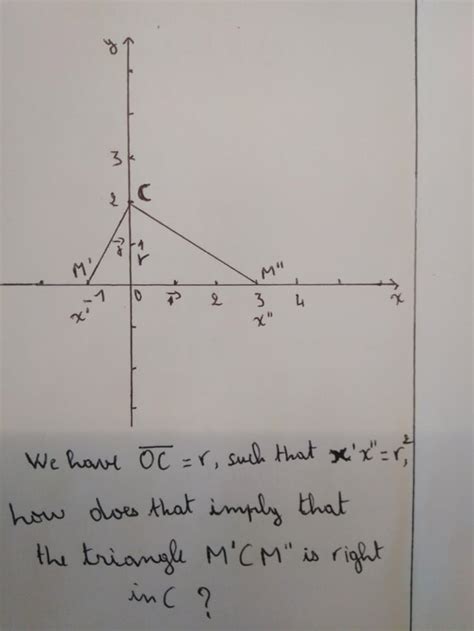 y
3
2 C
1
j
r
M' M"
-1 0 i 2 3 4 x
x' x"
We have OC = r, such that x'x" = r²,
how does that imply that
the triangle M'CM" is right
in C ?